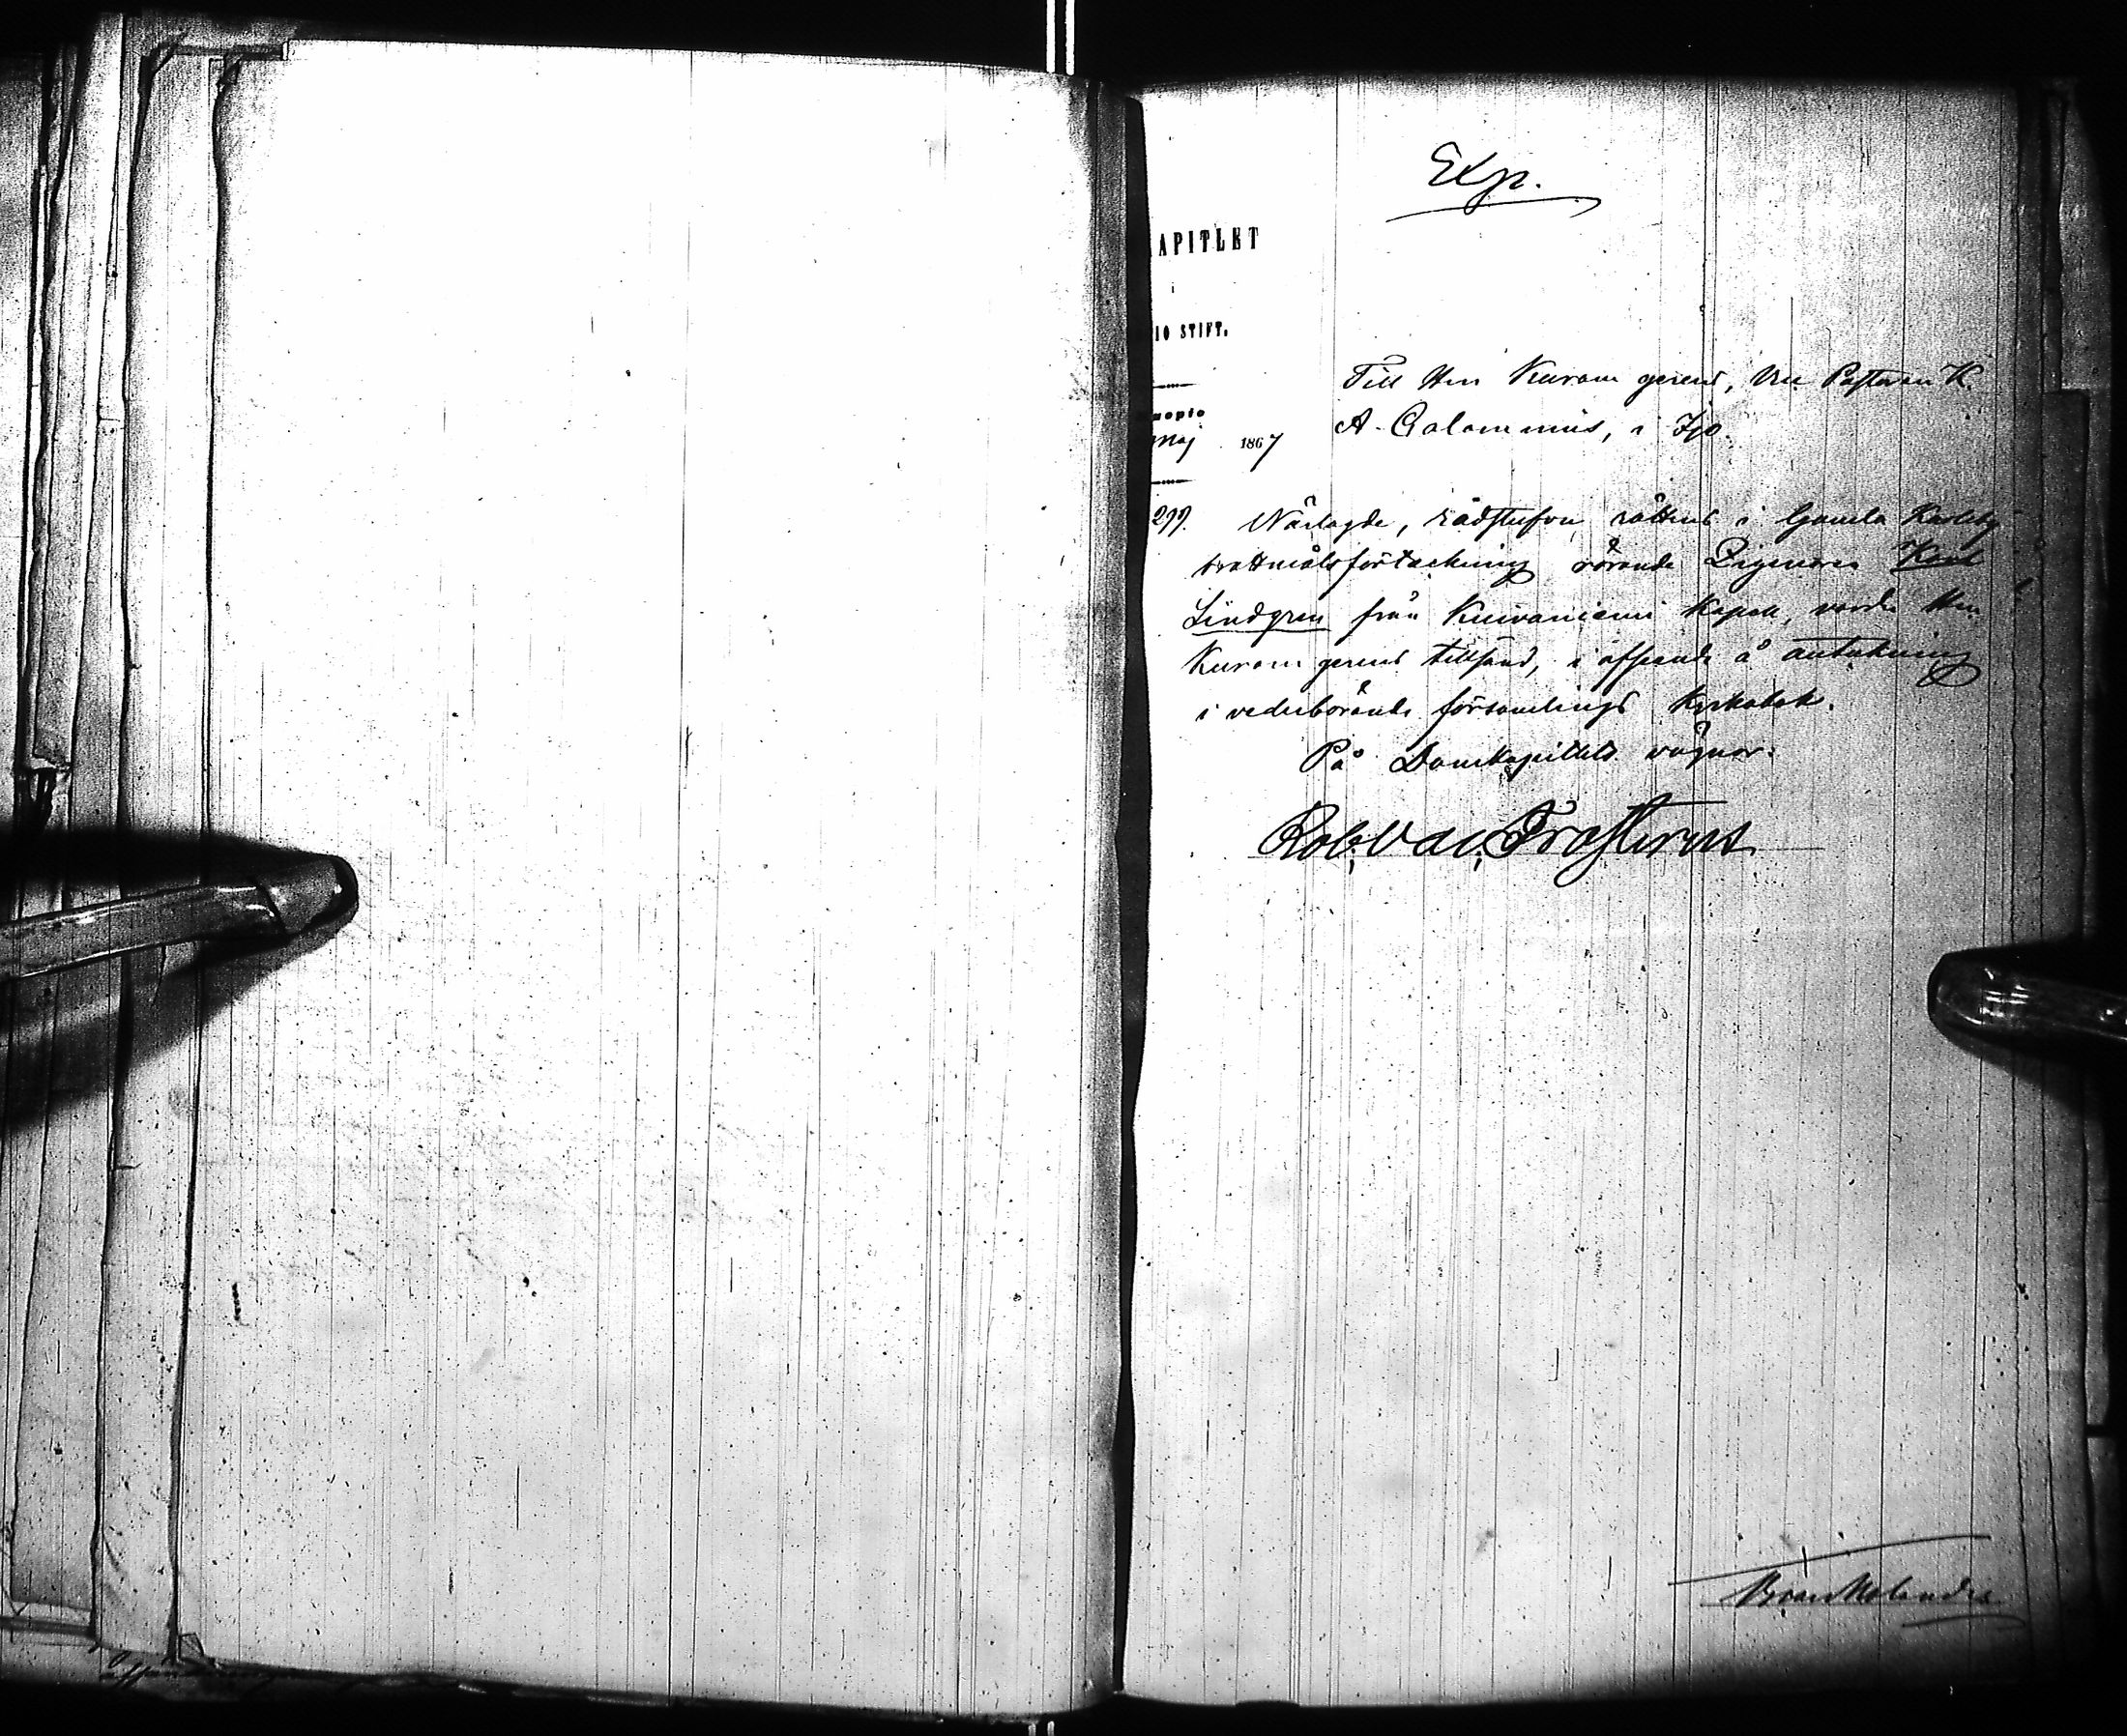 Exp.
APITLET
i
IO STIFT.
Till Hrr Kuram gerens, Vice Pastoren K.
A. Calamnius, i Ijo.
uopio
Maj 1867
299. Närlagde, rådstufvu rättens i Gamla Karleby
brottmålsförteckning rörande Zigenaren Karl
Lindgren från Kuivaniemi Kapell, varder Hrr
Kuram gerens tillsänd, i afseende å anteckning
i vederbörande församlings kyrkobok.
På Domkapitlets vägnar:
Rob. Val. Frosterus